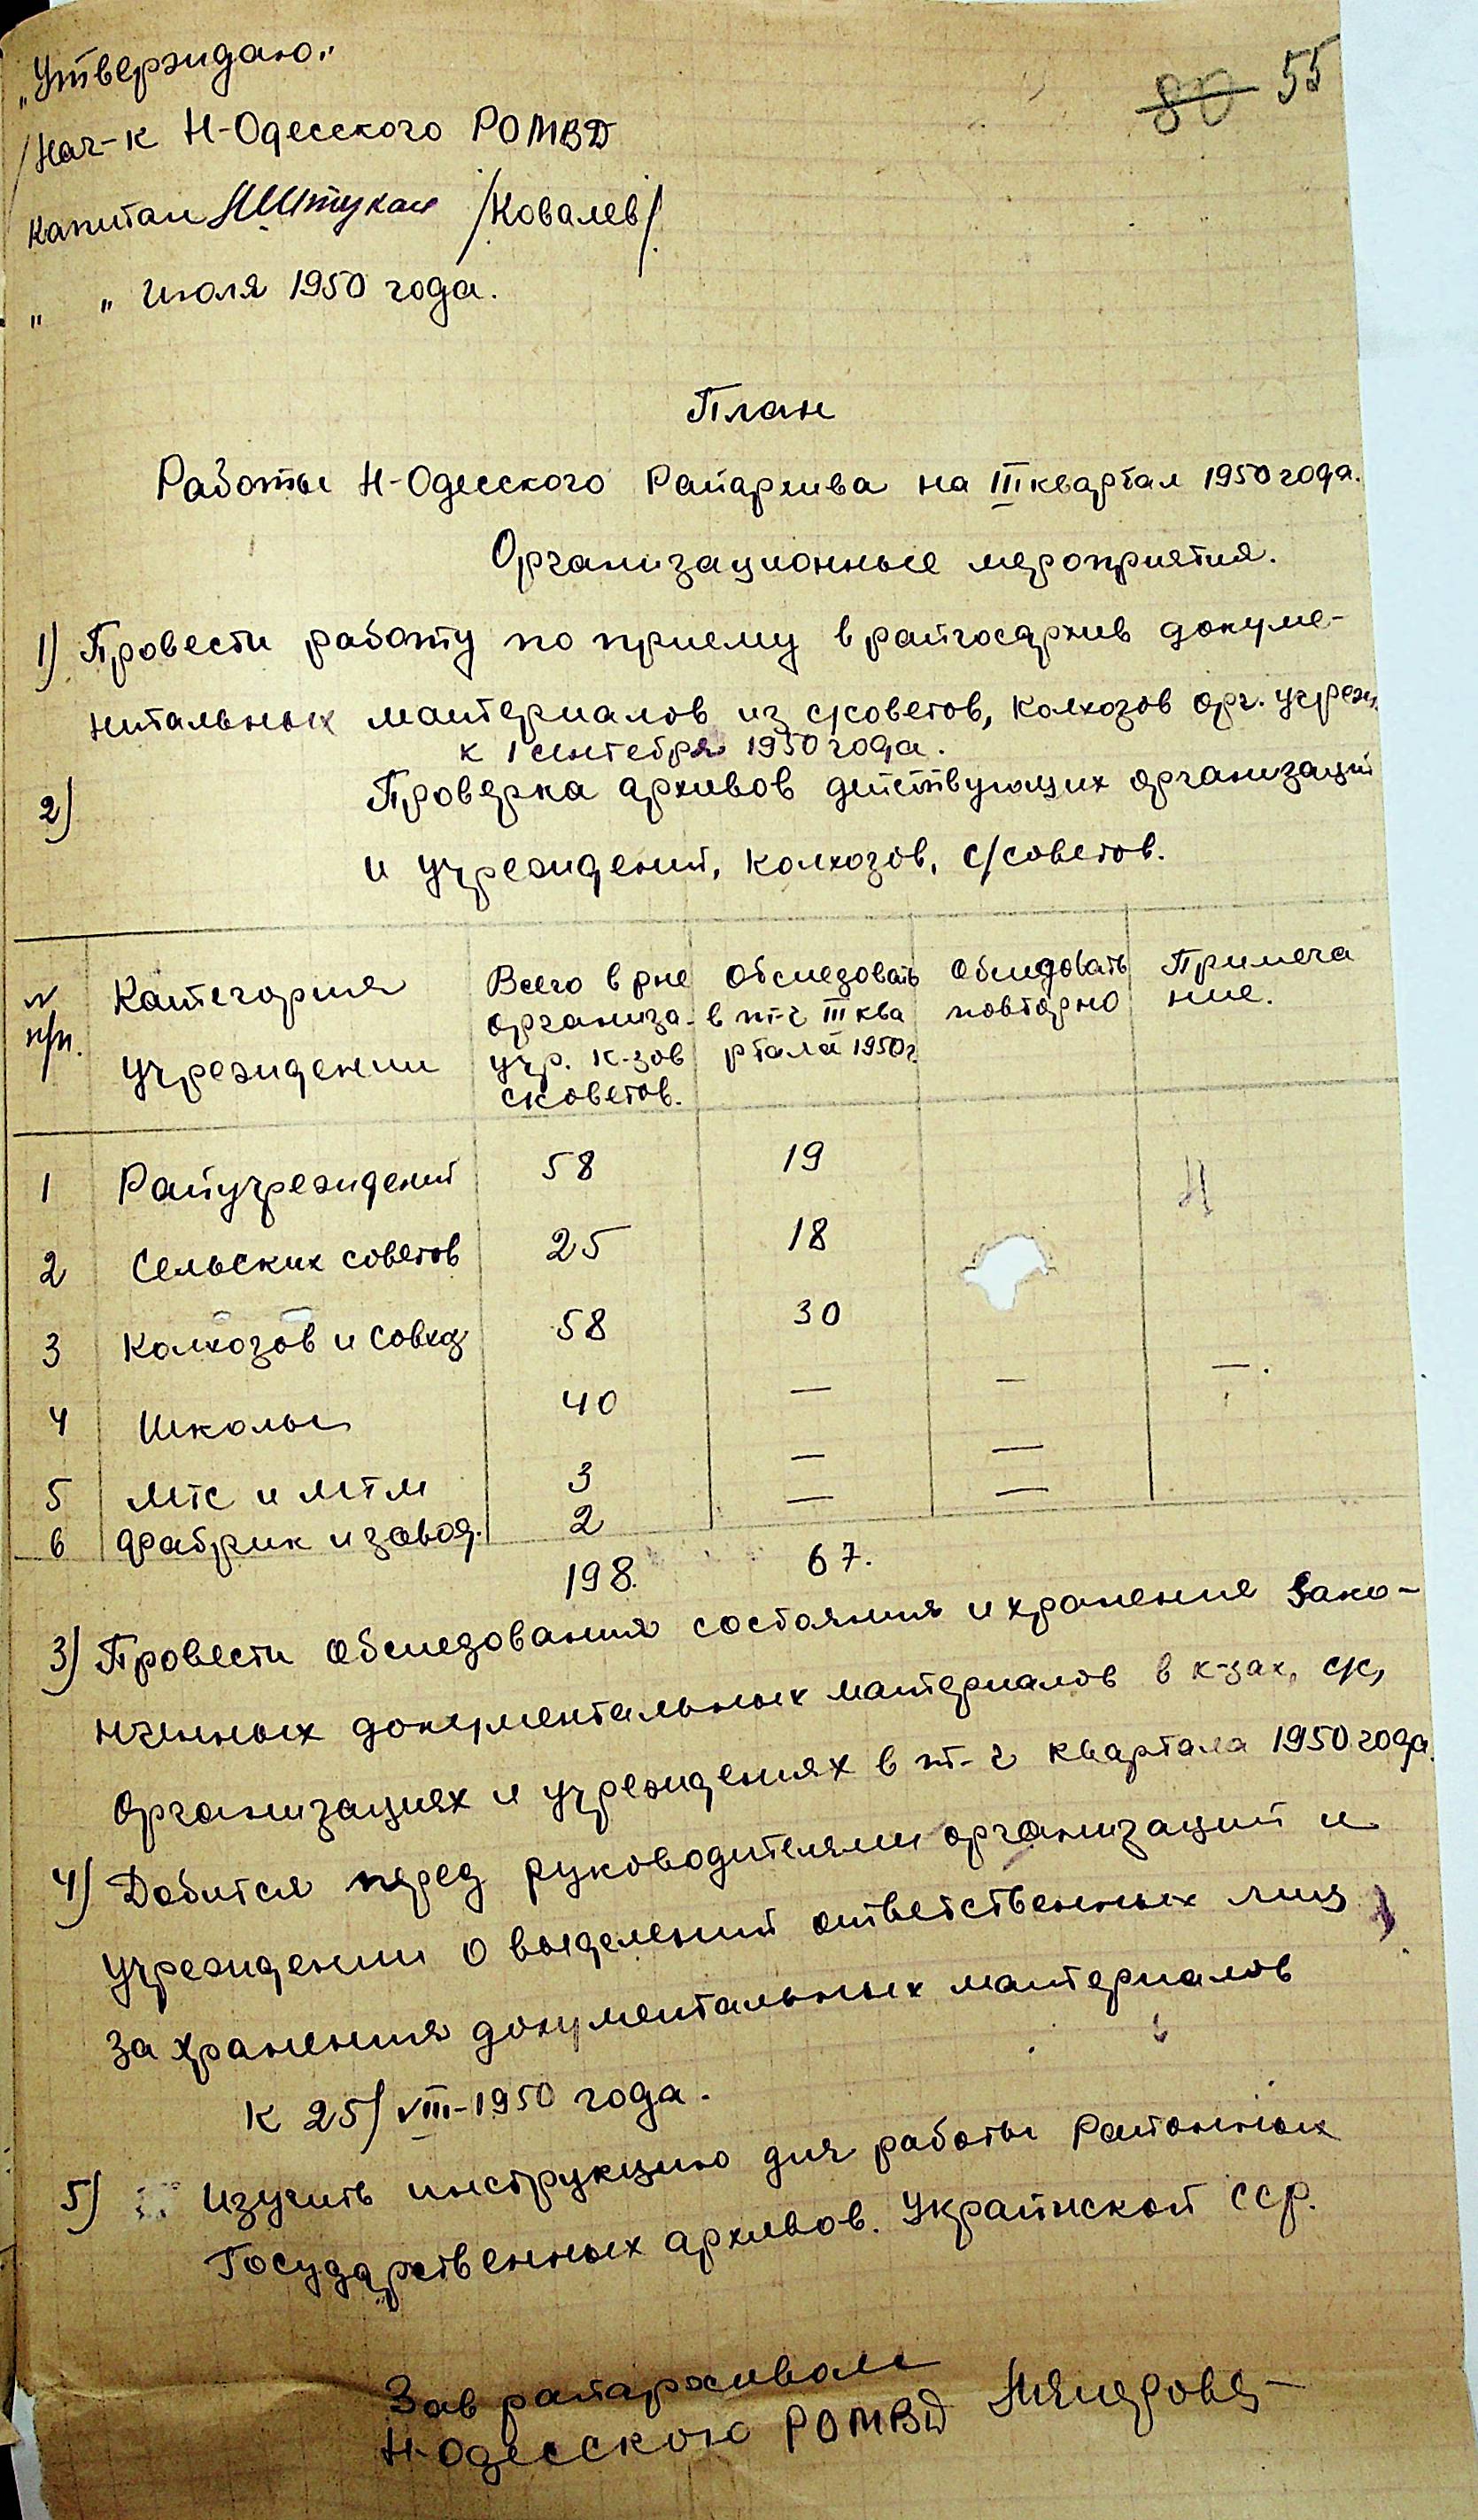 „Утверждаю."
80 55
Нач-к Н-Одесского РОМВД
капитан /Ковалев/
„ " Июля 1950 года.
План
Работы Н-Одесского Райархива на III квартал 1950 года.
Организационные мероприятия.
1) Провести работу по приему в райгосархив докуме-
нтальных материалов из с/советов, колхозов орг. учреж.
к 1 сентября 1950 года.
2) Проверка архивов действующих организаций
и учреждений, колхозов, с/советов.
N п/п. Категория учреждении Всего в рне организа. учр. к-зов сsоветов. Обследовать в т-ч III ква ртала 1950 г Обследовать повторно Примеча ние.
1 Райучреждений 58 19
2 Сельских советов 25 18
3 Колхозов и совхоз 58 30
4 Школы 40 — — —.
5 Мтс и мтм 3 — —
6 Фабрик и завод. 2 — —
198. 67.
3) Провести обследования состояния и хранение Зако-
нченных документальных материалов в к-зах, с/с,
организациях и учреждениях в т-ч квартала 1950 года.
4) Добится перед руководителями организаций и
учреждении о выделений ответственных лиц
за хранения документальных материалов
К 25/VIII-1950 года.
5) Изучить инструкцию для работы районных
Государственных архивов. Украйнской ССР.
Зав райархивом
Н-Одесского РОМВД